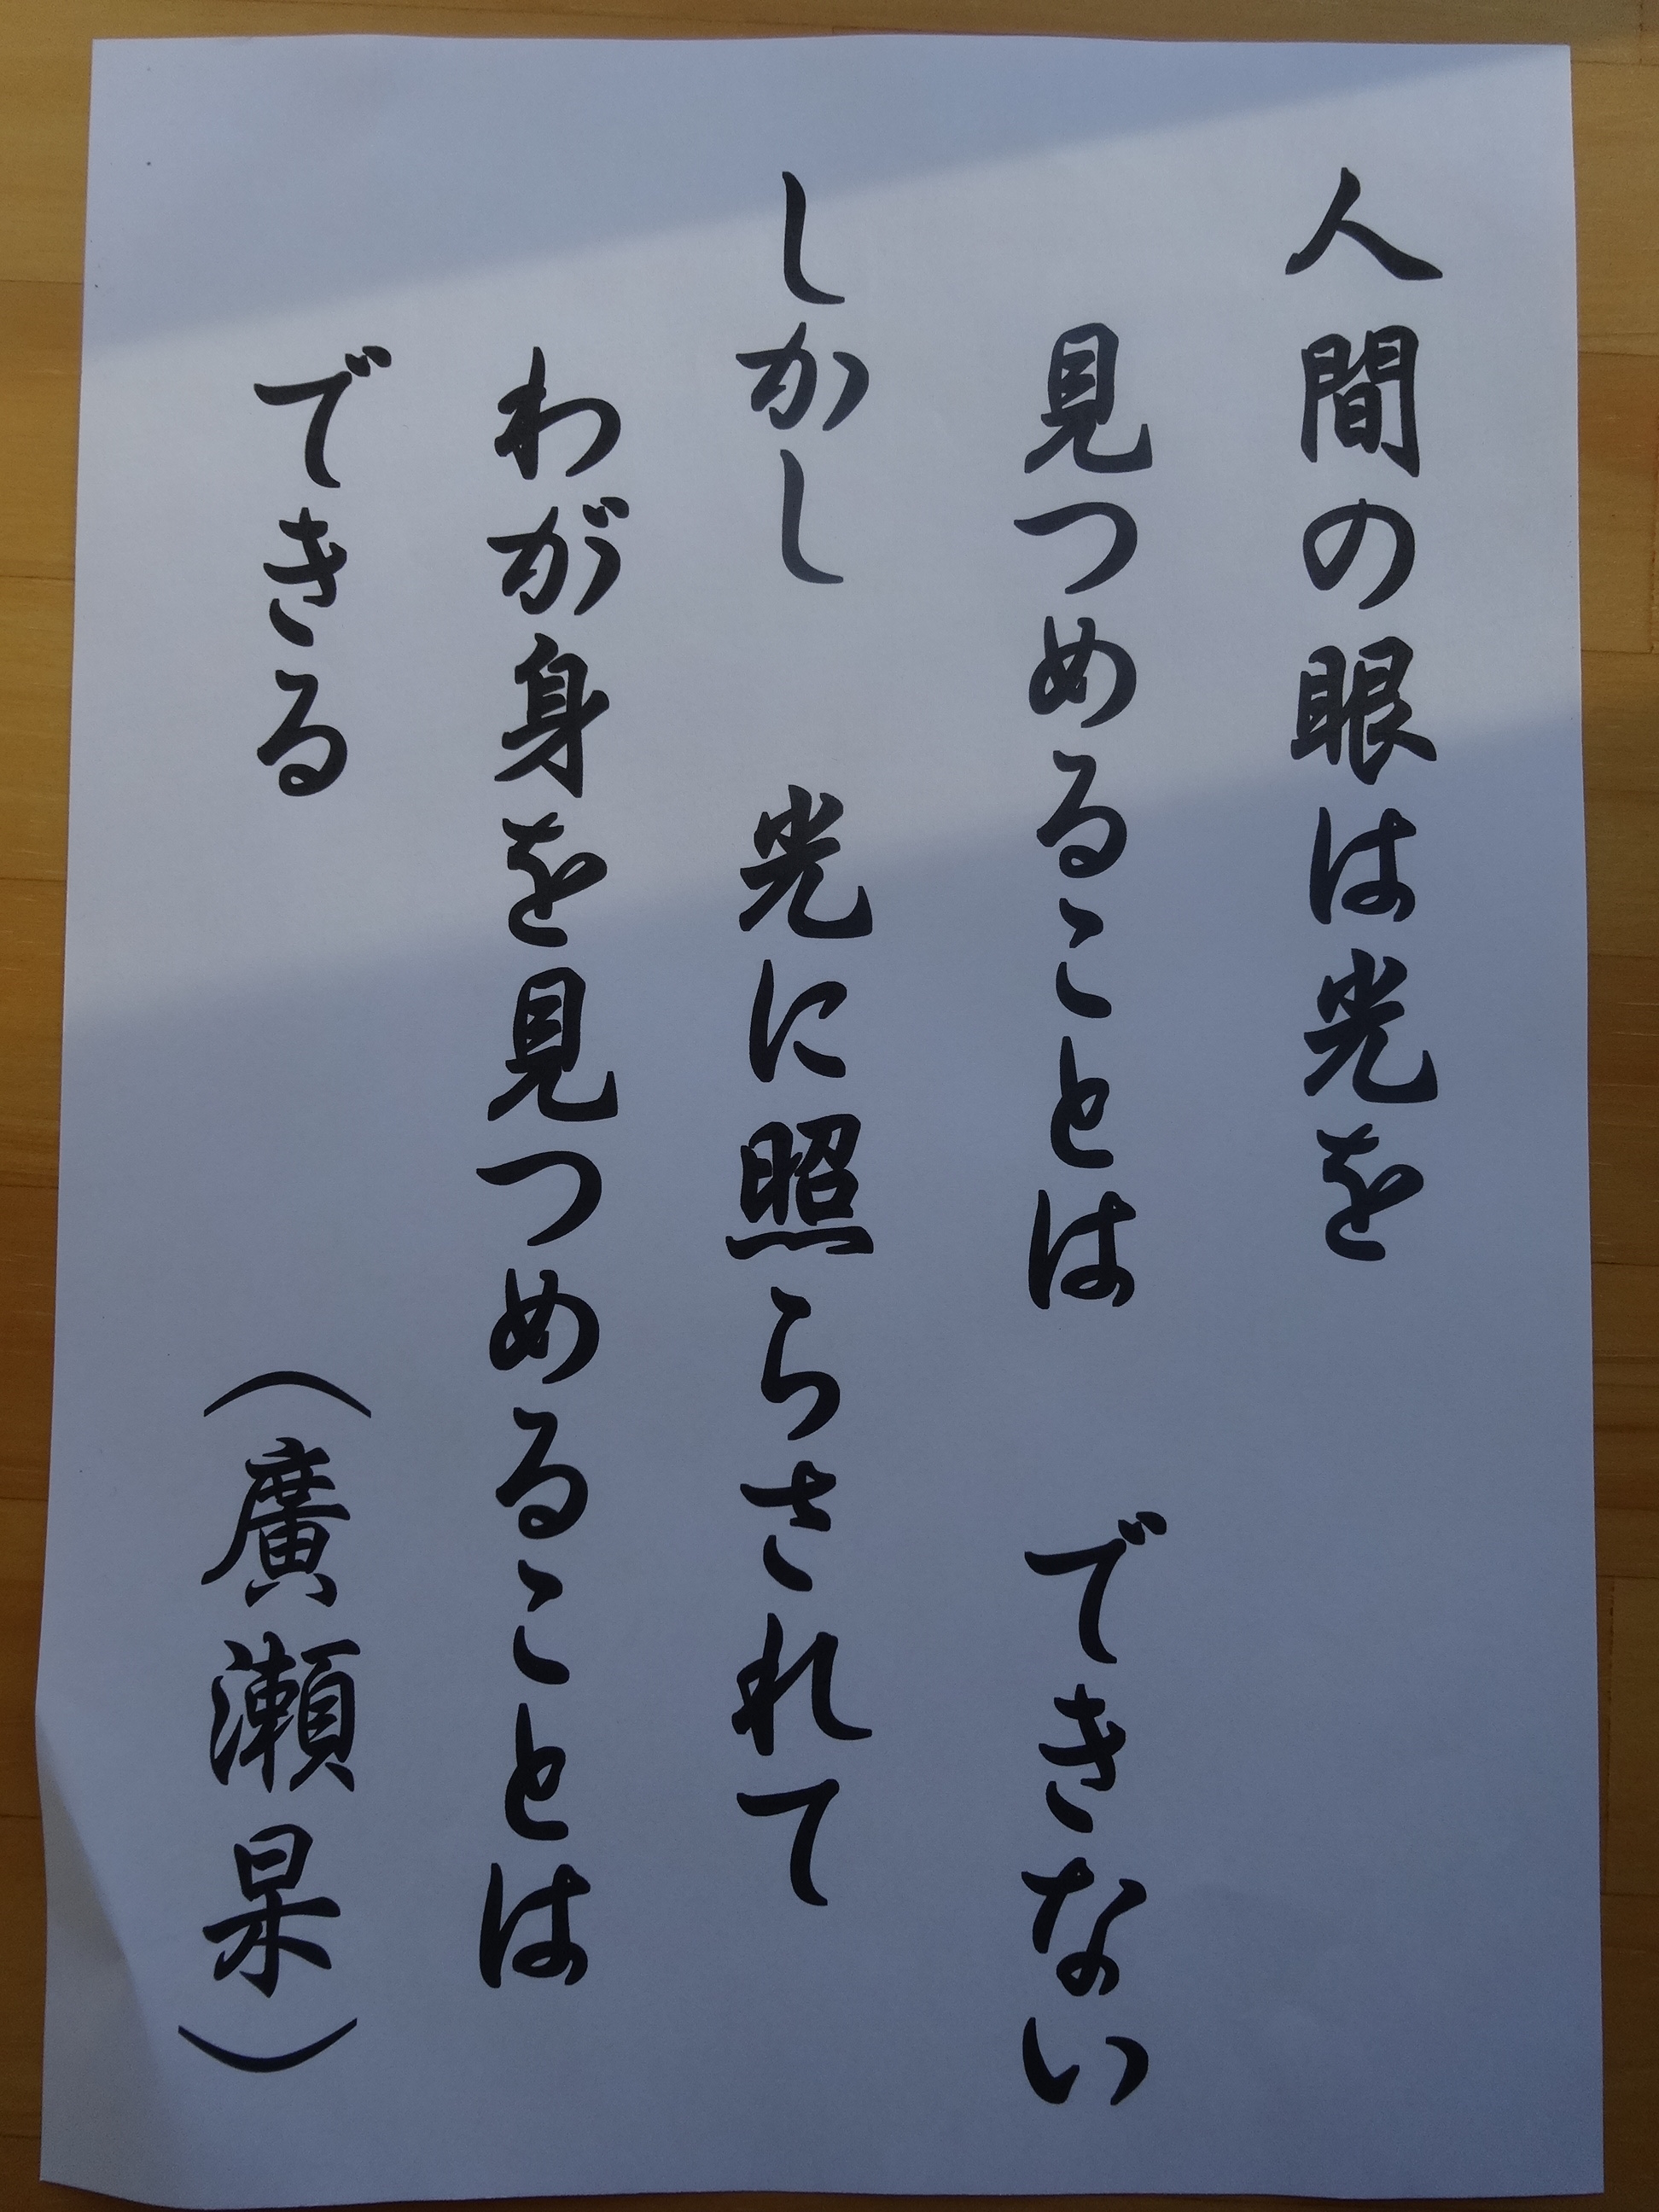 人間の眼は光を
見つめることは　できない
しかし　光に照らされて
わが身を見つめることは
できる　（廣瀬杲）